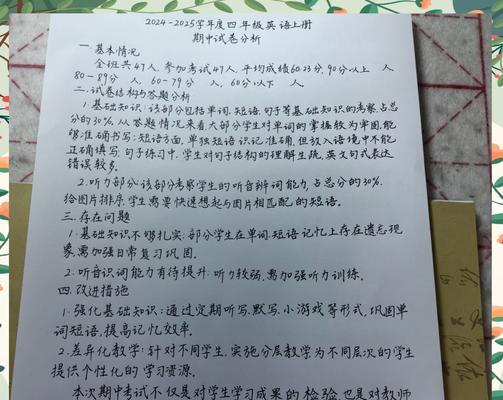 2024-2025学年度四年级英语上册
期中试卷分析
一.基本情况
全班共47人,参加考试47人,平均成绩60.23分,90分以上 人
80-89分 人, 60-79分 人, 60分以下 人.
二.试卷结构与答题分析
1.基础知识:该部分包括单词,短语,句子等基础知识的考察,占总
分的30%,从答题情况来看,大部分学生对单词的掌握较为牢固,能
够准确书写;短语方面,单独短语识记准确,但放入语境中不能
正确填写;句子练习中,学生对句子结构的理解生疏,英文句式表达
错误较多.
2.听力部分:该部分考察学生的听音辨词能力,占总分的30%.
给图片排序,学生需要快速想起与图片相匹配的短语.
三.存在问题
1.基础知识不够扎实:部分学生在单词,短语记忆上存在遗忘现
象,需加强日常复习巩固.
2.听音识词能力有待提升:听力较弱,需加强听力训练.
四.改进措施
1.强化基础知识:通过定期听写,默写,小游戏等形式,巩固单
词短语,提高记忆效率.
2.差异化教学:针对不同学生,实施分层教学,为不同层次的学生
提供个性化的学习资源.
本次期中考试不仅是对学生学习成果的检验,也是对教师